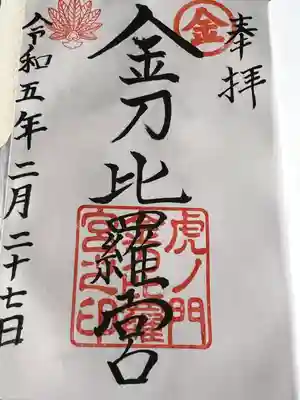 奉拝
金
金刀比羅宮
虎ノ門
金刀比羅
宮之印
令和五年二月二十七日